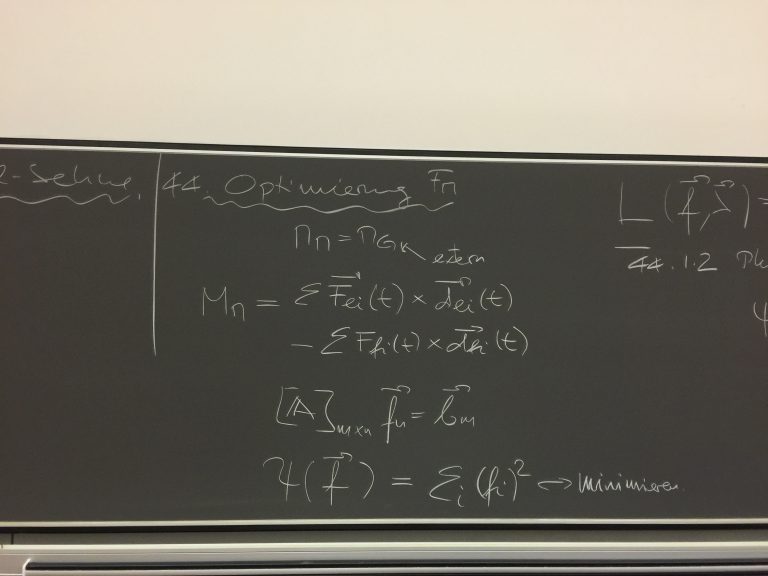 -Sehne
44. Optimierung Fₙ
Mₙ = Σ F⃗ei(t) × d⃗ei(t)
− Σ Ffi(t) × d⃗fi(t)
[A]ₘₓₙ f⃗ₙ = b⃗ₘ
Ψ(f⃗) = Σᵢ (fᵢ)² → minimieren
L(f⃗, λ⃗) =
44.1.2
Ψ